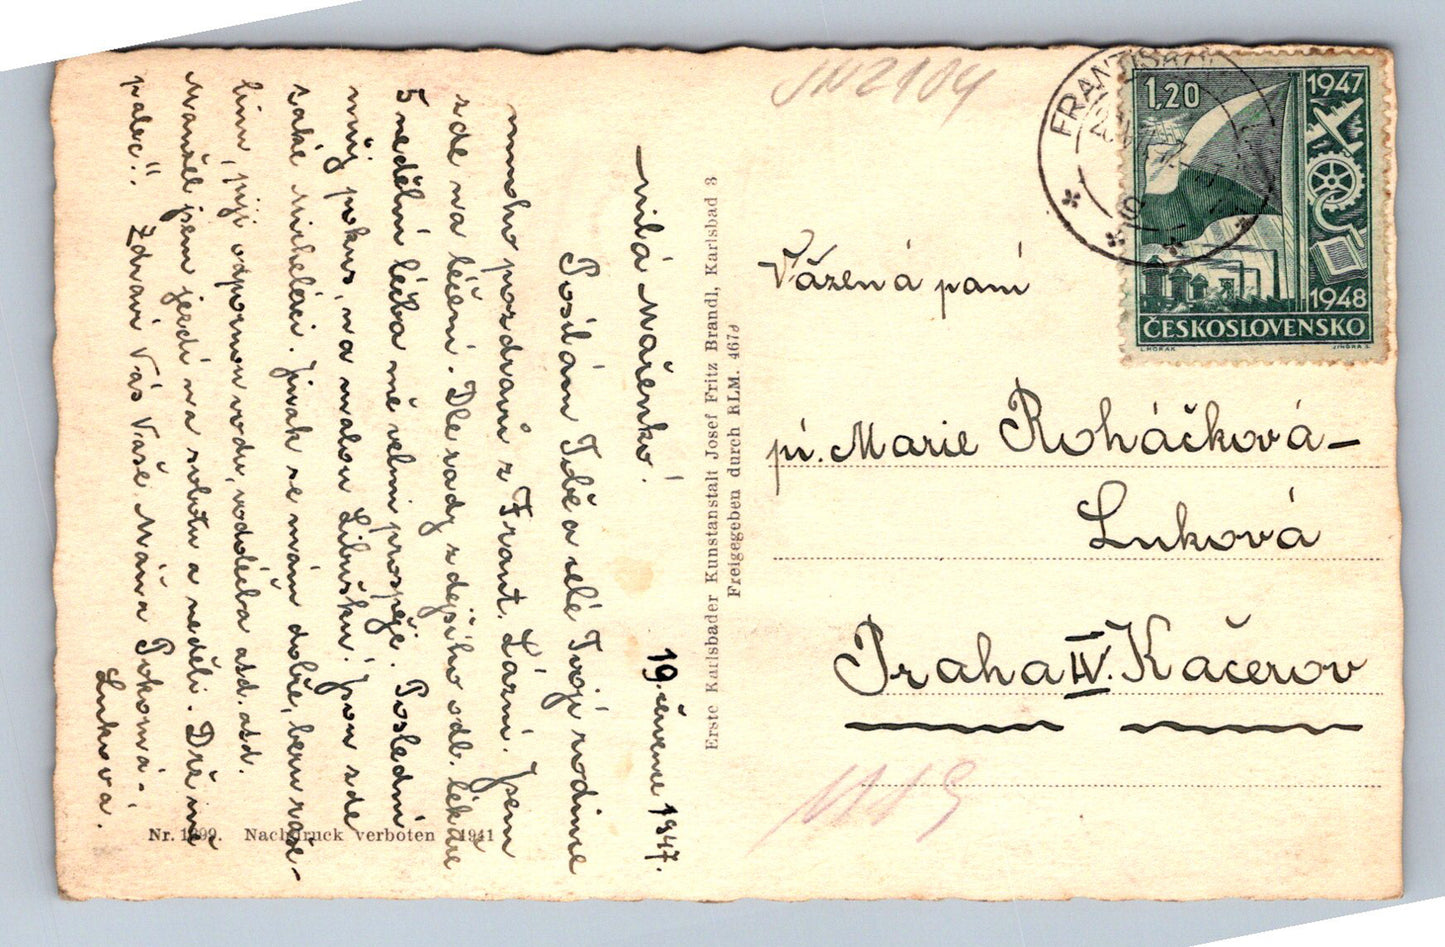 Milá Mařenko!
19. července 1947.
Posílám Tobě a celé Tvojí rodině
mnoho pozdravů z Frant. Lázní. Jsem
zde na léčení. Dle rady zdejšího odb. lékaře
5 nedělní léčba mně velmi prospěje. Poslední
můj pokus, na malou Libušku! Jsou zde
také
Jinak se mám dobře, beru raše-
linu, piji odpornou vodu, vodoléčba atd. atd.
Manžel jsem jezdí na sobotu a neděli. Drž mi
palec!!. Zdraví Vás Vaše Máňa Pokorná-
Luková.
Nr. 1899. Nachdruck verboten 1941
Erste Karlsbader Kunstanstalt Josef Fritz Brandl, Karlsbad 3
Freigegeben durch RLM. 467
JN2104
FRANTIŠK
1,20
1947
1948
ČESKOSLOVENSKO
L.HORÁK
JINDRA S.
Vážená paní
pí. Marie Roháčková-
Luková
Praha IV. Kačerov